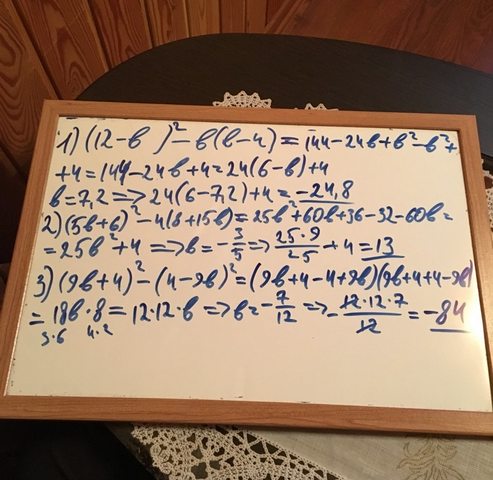 1) (12-b)²-b(b-4)=144-24b+b²-b²+
+4=144-24b+4=24(6-b)+4
b=7,2=>24(6-7,2)+4=-24,8
2)(5b+6)²-4(8+15b)=25b²+60b+36-32-60b=
=25b²+4=>b=-3/5=>25·9/25+4=13
3) (9b+4)²-(4-9b)²=(9b+4-4+9b)(9b+4+4-9b)
=18b·8=12·12·b=>b=-7/12=>-12·12·7/12=-84
3·6 4·2